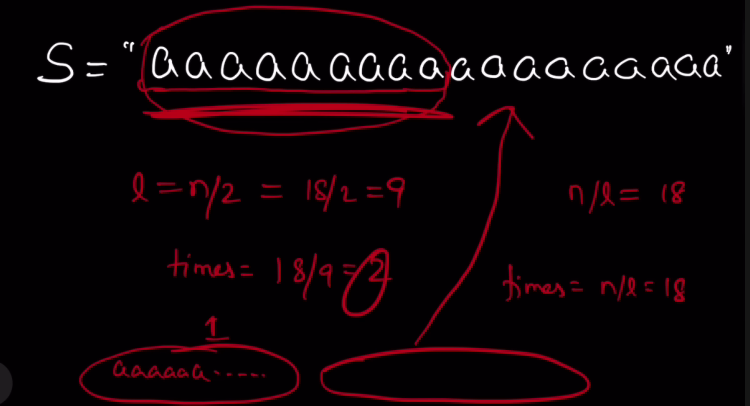 S = "aaaaaaaaaaaaaaaaaa"
l = n/2 = 18/2 = 9
n/l = 18
times = 18/9 = 2
times = n/l = 18
1
aaaaaa.....